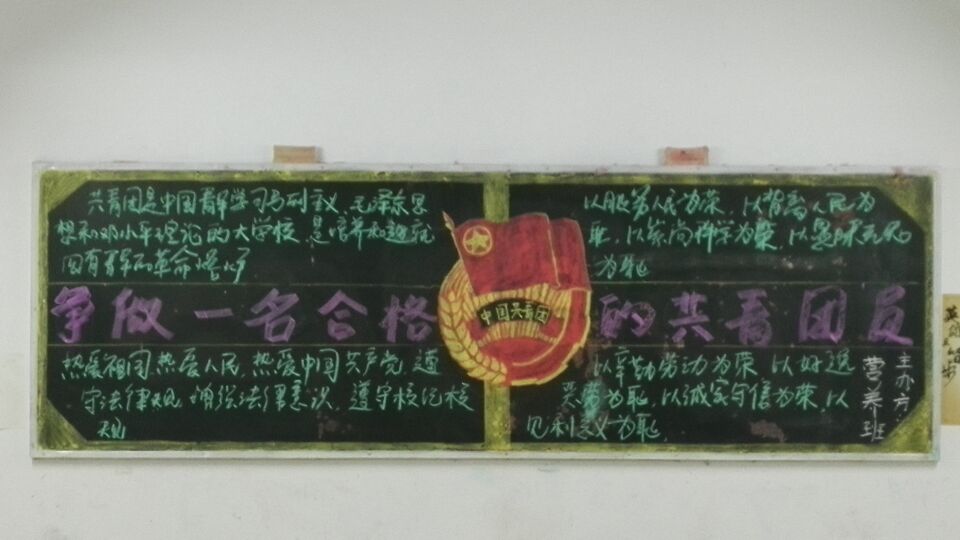 共青团是中国青年学习马列主义、毛泽东思
想和邓小平理论的大学校 是培养和造就
国有青年的革命
以服务人民为荣，以背离人民为
耻，以崇尚科学为荣，以愚昧无知
为耻
争做一名合格
中国共青团
的共青团员
热爱祖国,热爱人民,热爱中国共产党,遵
守法律法规,增强法律意识,遵守校纪校
规
以辛勤劳动为荣 以好逸
恶劳为耻,以诚实守信为荣,以
见利忘义为耻,
主办方:
营养班